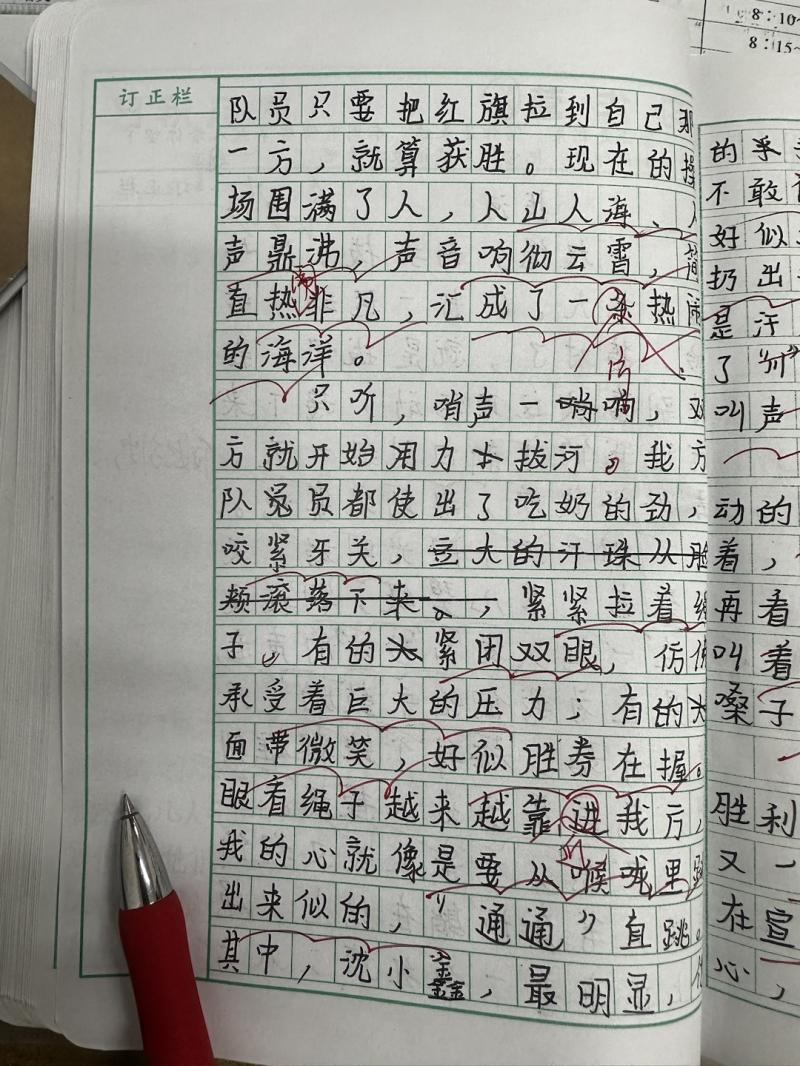 8：10~
8：15~
订正栏
队员只要把红旗拉到自己那
一方，就算获胜。现在的操
场围满了人，人山人海、人
声鼎沸，声音响彻云霄，简
直热非凡，汇成了一条热闹
闹
的海洋。
片
只听，哨声一响，双
方就开始用力拔河。我方
队员都使出了吃奶的劲，
咬紧牙关，豆大的汗珠从脸
颊滚落下来。，紧紧拉着绳
子。有的紧闭双眼，仿佛
承受着巨大的压力；有的
面带微笑，好似胜券在握。
眼看绳子越来越靠进我方，
近
我的心就像是要从喉咙里跳
出来似的，“通通”直跳。
其中，沈小鑫，最明显，
的
不敢
好似
扔出
是汗
了“
叫声
动的
着，
再看
叫着
嗓子
胜利
又一
在宣
心，